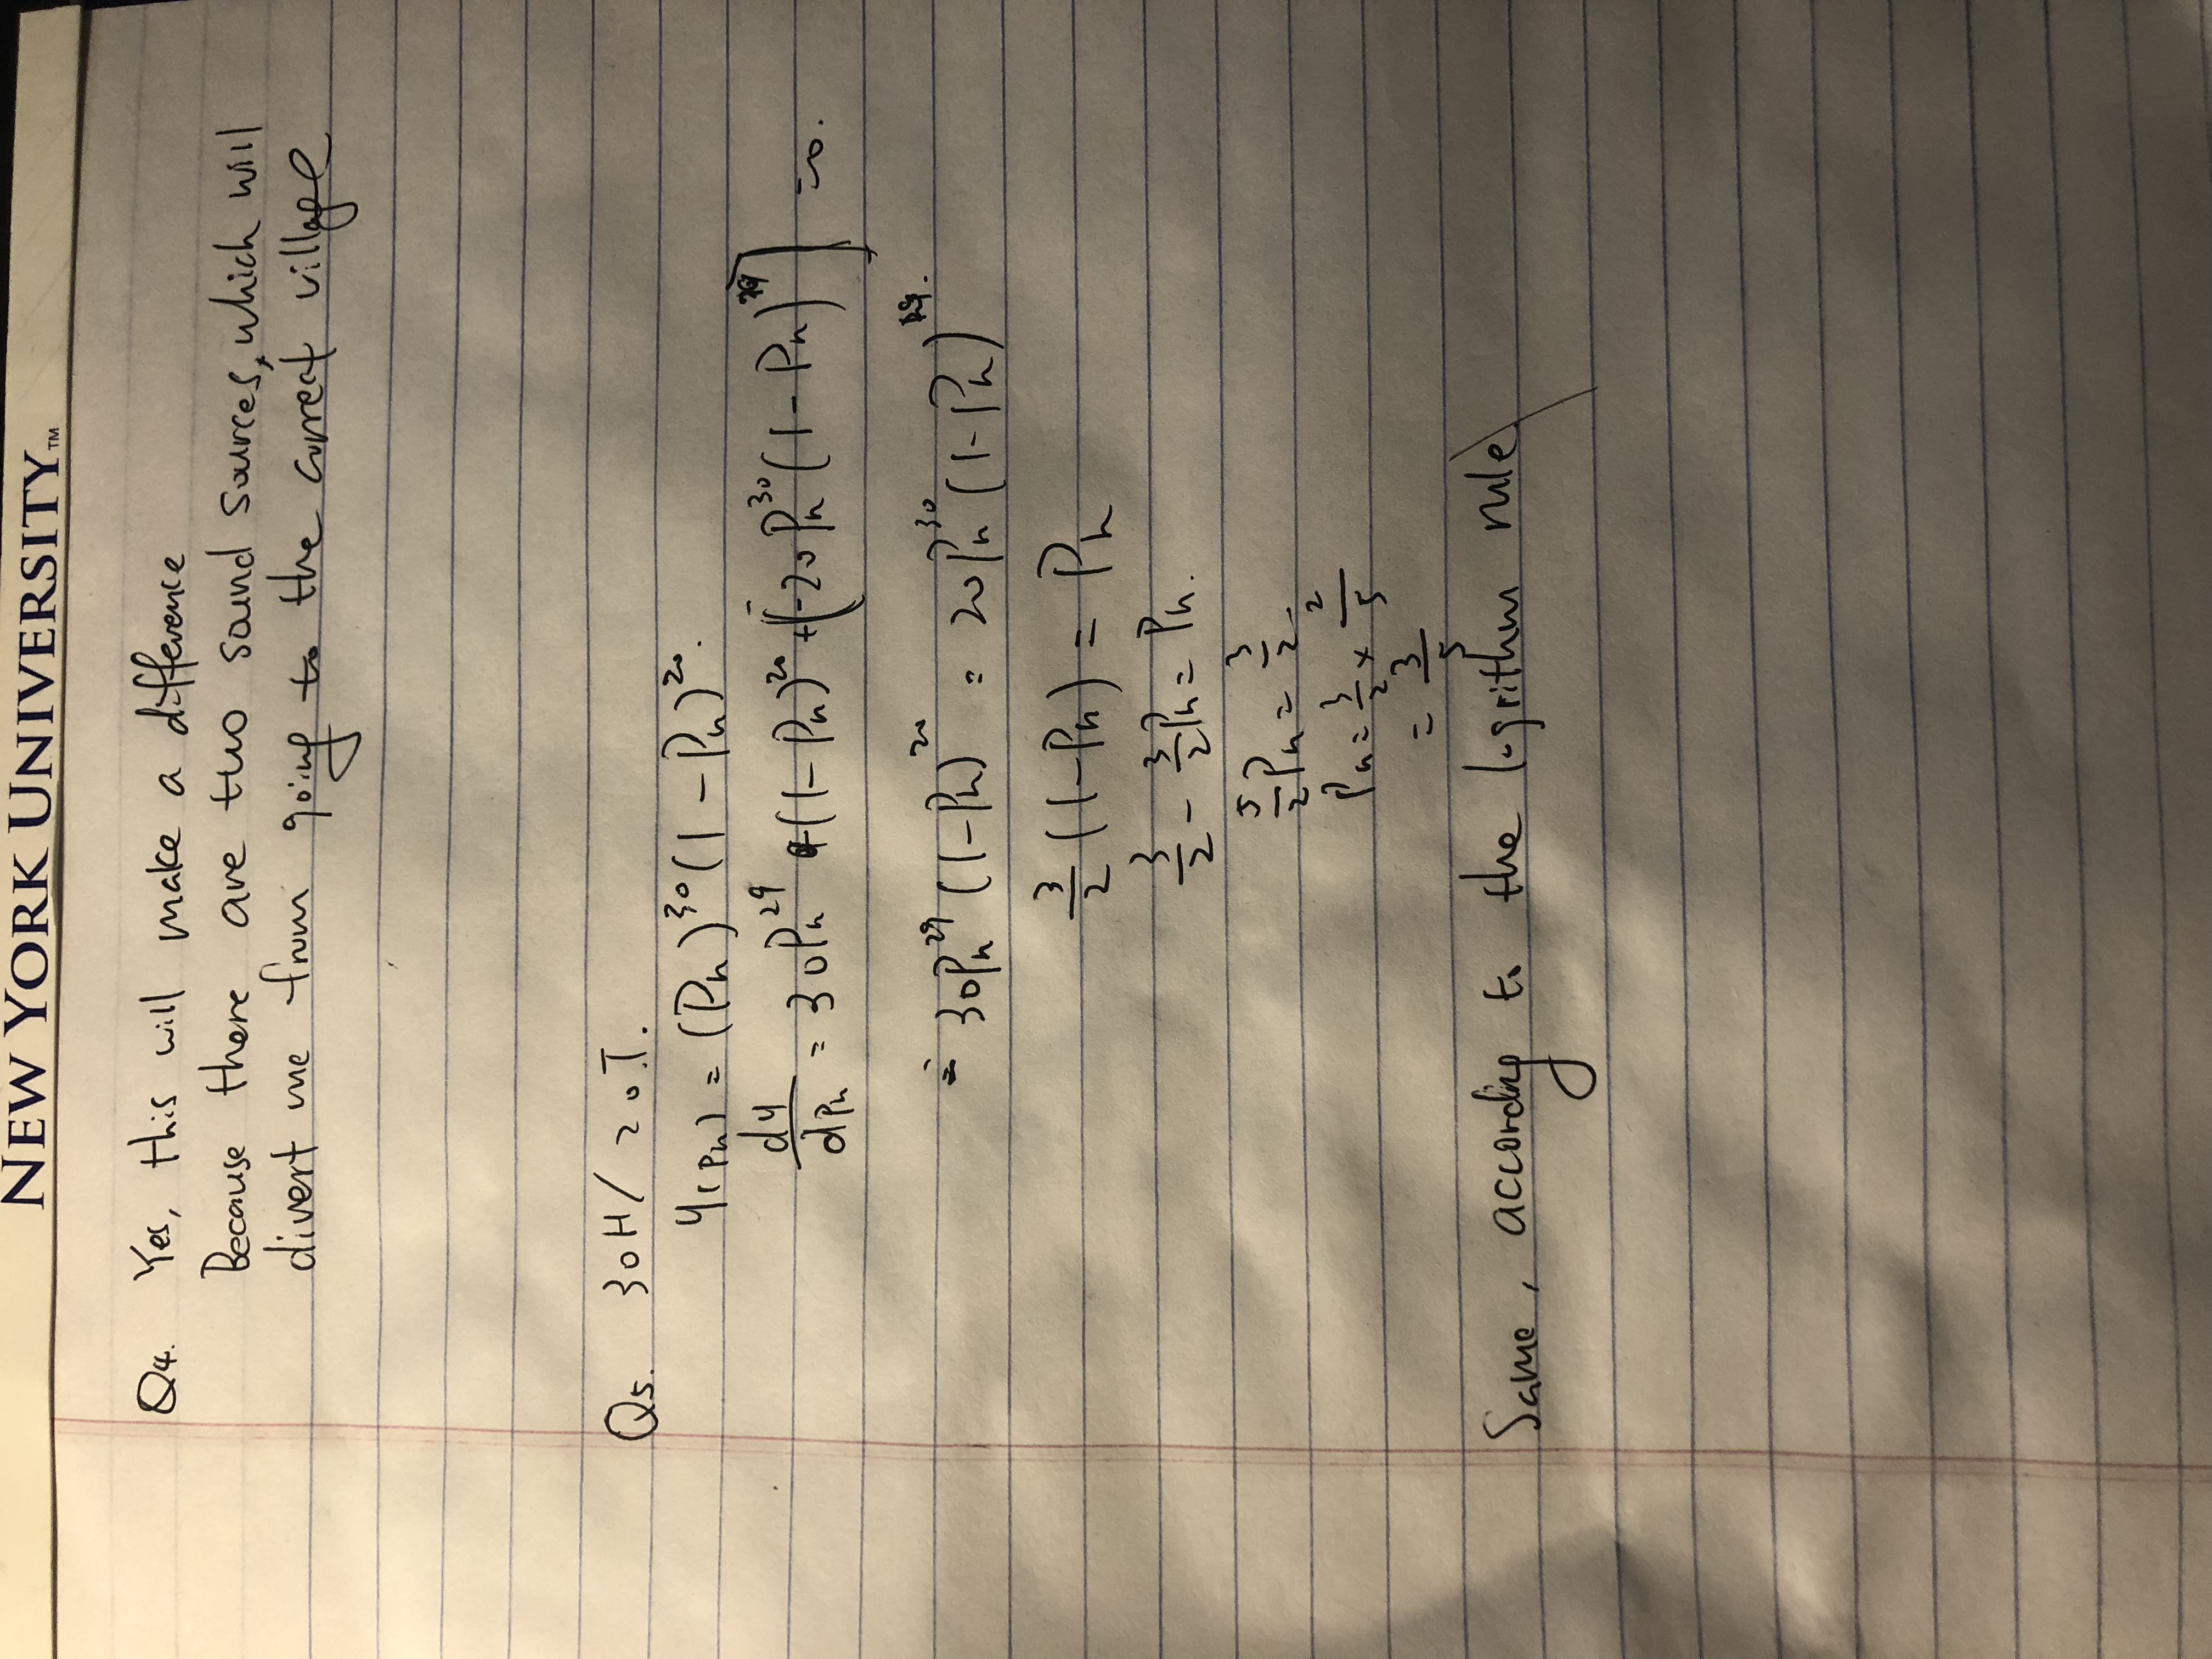 NEW YORK UNIVERSITY™
Q4. Yes, this will make a difference
Because there are two sound sources, which will
divert me from going to the correct village
Q5. 30H/ 20T.
y(Ph) = (Ph)^30 (1-Ph)^20.
dy/dPh = 30Ph^29 (1-Ph)^20 + [-20Ph^30 (1-Ph)^19] =0.
= 30Ph^29 (1-Ph)^20 = 20Ph^30 (1-Ph)^19.
3/2 (1-Ph) = Ph
3/2 - 3/2Ph = Ph.
5/2Ph = 3/2.
Ph = 3/2 × 2/5
= 3/5
Same, according to the logrithm rule